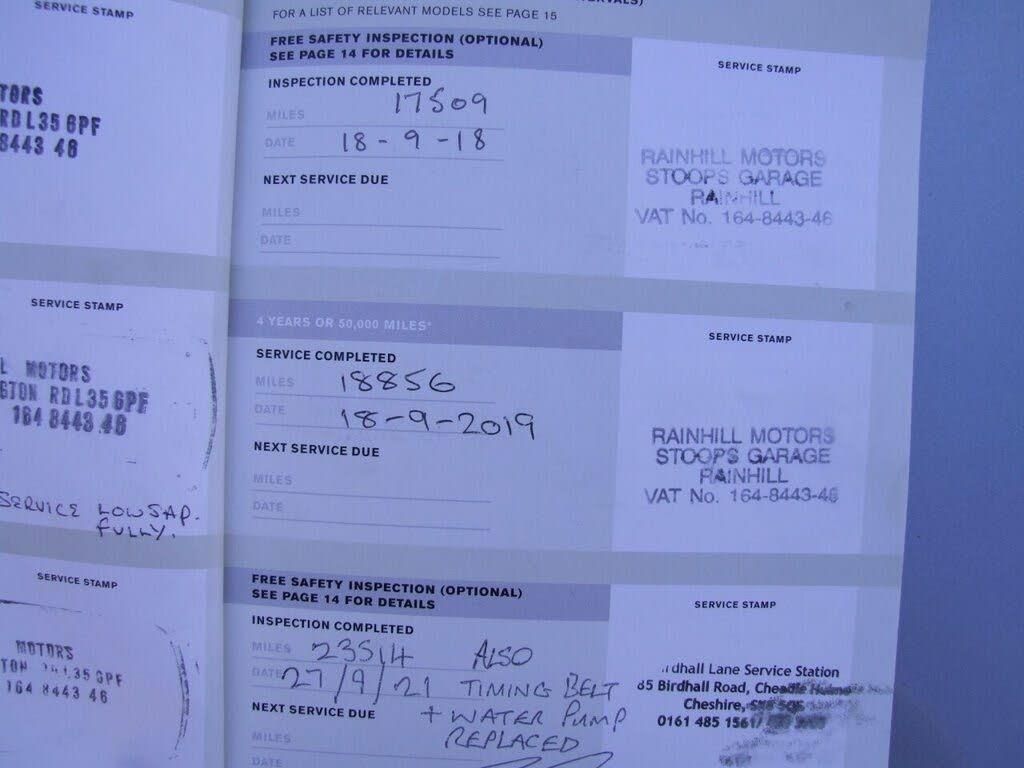 SERVICE STAMP
TORS
RD L35 6PF
8443 46
SERVICE STAMP
MOTORS
RD L35 6PF
164 8443 46
SERVICE LOW SAP.
FULLY.
SERVICE STAMP
MOTORS
L35 6PF
164 8443 46
FOR A LIST OF RELEVANT MODELS SEE PAGE 15
FREE SAFETY INSPECTION (OPTIONAL)
SEE PAGE 14 FOR DETAILS
INSPECTION COMPLETED
MILES 17509
DATE 18-9-18
NEXT SERVICE DUE
MILES
DATE
SERVICE STAMP
RAINHILL MOTORS
STOOPS GARAGE
RAINHILL
VAT No. 164-8443-46
4 YEARS OR 50,000 MILES*
SERVICE COMPLETED
MILES 18856
DATE 18-9-2019
NEXT SERVICE DUE
MILES
DATE
SERVICE STAMP
RAINHILL MOTORS
STOOPS GARAGE
RAINHILL
VAT No. 164-8443-46
FREE SAFETY INSPECTION (OPTIONAL)
SEE PAGE 14 FOR DETAILS
INSPECTION COMPLETED
MILES 23514 ALSO
DATE 27/9/21 TIMING BELT
NEXT SERVICE DUE + WATER PUMP
MILES REPLACED
DATE
SERVICE STAMP
dhall Lane Service Station
85 Birdhall Road, Cheadle Hulme
Cheshire,
0161 485 1561/